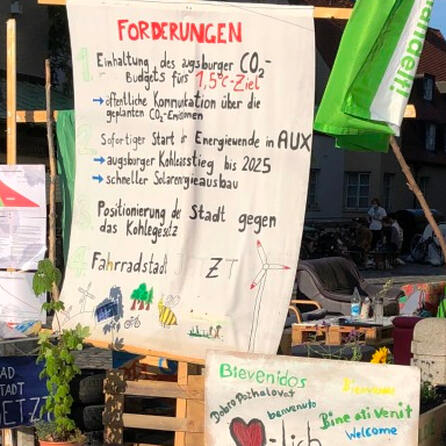 FORDERUNGEN
1. Einhaltung des augsburger CO2-
Budgets fürs 1,5°C-Ziel
→ öffentliche Kommunikation über die
geplanten CO2-Emissionen
2. Sofortiger Start in Energiewende in AUX
→ augsburger Kohleausstieg bis 2025
→ schneller Solarenergieausbau
3. Positionierung der Stadt gegen
das Kohlegesetz
4. Fahrradstadt JETZT
handeln!
AD
STADT
JETZT
Bievenidos
Dobro Pozhalovat
benvenuto
Bine ati venit
Welcome
-lich